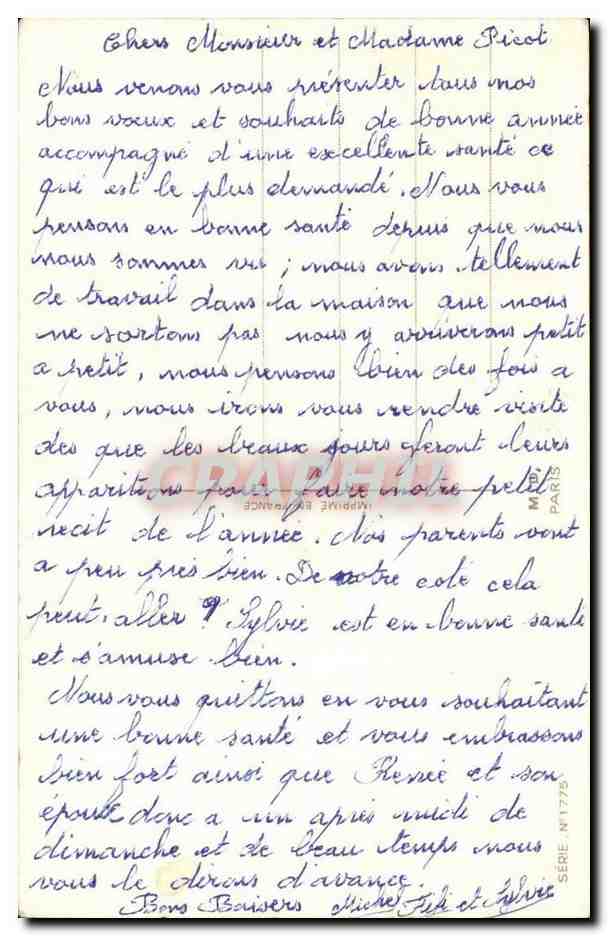 Chers Monsieur et Madame Picot
Nous venons vous présenter tous nos
bons voeux et souhaits de bonne année
accompagné d'une excellente santé ce
qui est le plus demandé. Nous vous
pensons en bonne santé depuis que nous
nous sommes vu ; nous avons tellement
de travail dans la maison que nous
ne sortons pas nous y arriverons petit
a petit, nous pensons bien des fois a
vous, nous irons vous rendre visite
des que les beaux jours feront leurs
apparitions pour faire notre petit
recit de l'année. Nos parents vont
a peu près bien. De notre coté cela
peut-aller ? Sylvie est en bonne santé
et s'amuse bien.
Nous vous quittons en vous souhaitant
une bonne santé et vous embrassons
bien fort ainsi que Renée et son
époux donc a un après midi de
dimanche et de beau temps nous
vous le dirons d'avance.
Bons Baisers Michel Fifi et Sylvie
CPAPHIL
IMPRIMÉ EN FRANCE
M.D.
PARIS
SÉRIE N° 1775